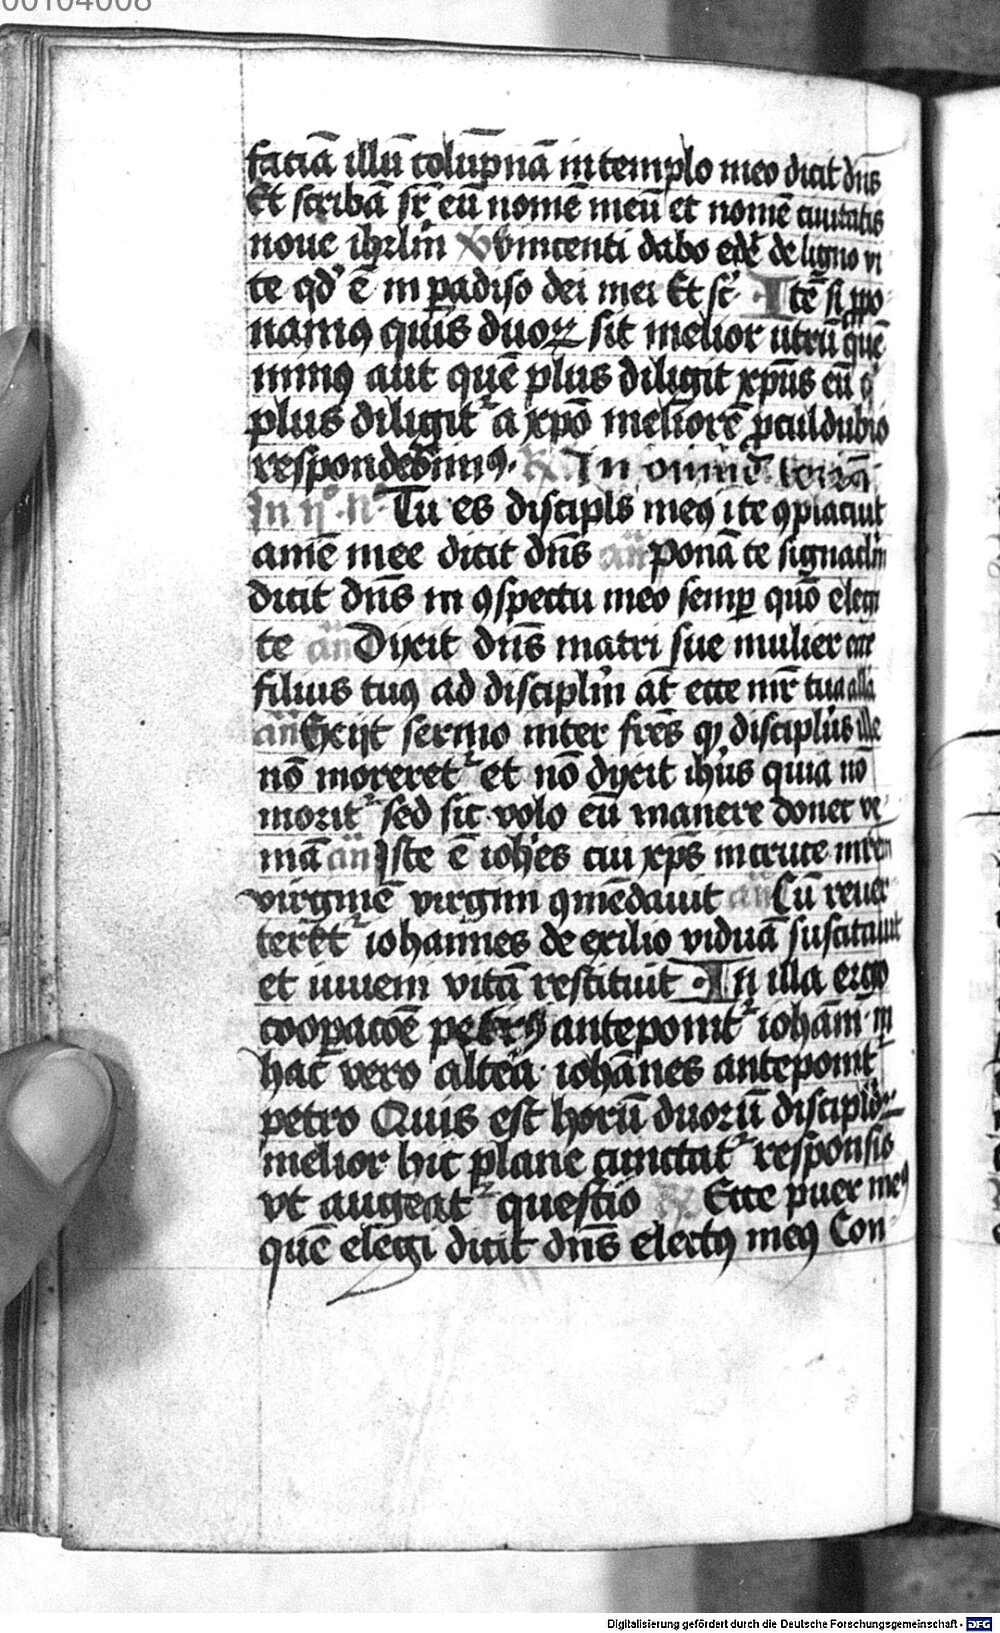 00104008
faciā illū colūpnā in templo meo dicit dn̄s
Et scribā sr̄ eū nomē meū et nomē ciuitatis
noue ihrlm̄ v̄ vincenti dabo edē de ligno vi
te qd' ē in padiso dei mei Et sc̄ · Itē si ppo
namꝰ quis duoꝝ sit melior utrū quē
minꝰ aut quē plus diligit xpūs eū q'
plus diligit᷑ a xpō meliorē pculdubio
respondebimꝰ. In omnē terrā
In ijº nº Tu es discipls meꝰ i te ꝯplacuit
anīe mee dicit dn̄s an̄ Ponā te signaclm̄
dicit dn̄s in ꝯspectu meo semp quō elegi
te an̄ Dixit dn̄s matri sue mulier ecce
filius tuꝰ ad disciplm̄ at̄ ecce mr̄ tua alla
an̄ Exijt sermo inter fr̄es ꝙ disciplūs ille
nō moreret᷑ et nō dyxit ihūs quia nō
morit᷑ sed sic volo eū manere donec ve
niā an̄ Iste ē ioh̄es cui xp̄s in cruce mr̄em
virginē virgini ꝯmēdauit an̄ Cū reuer
teret᷑ iohannes de exilio viduā suscitauit
et iuueni vitā restituit · In illa ergo
coopacōe petrꝰ anteponit᷑ iohām · in
hac vero altēa · iohānes anteponit᷑
petro Quis est horū duorū disciploꝝ
melior hic plane cunctat᷑ responsio
vt augeat᷑ questio R̄ Ecce puer meꝰ
quē elegi dicit dn̄s electꝰ meꝰ Con
Digitalisierung gefördert durch die Deutsche Forschungsgemeinschaft - DFG